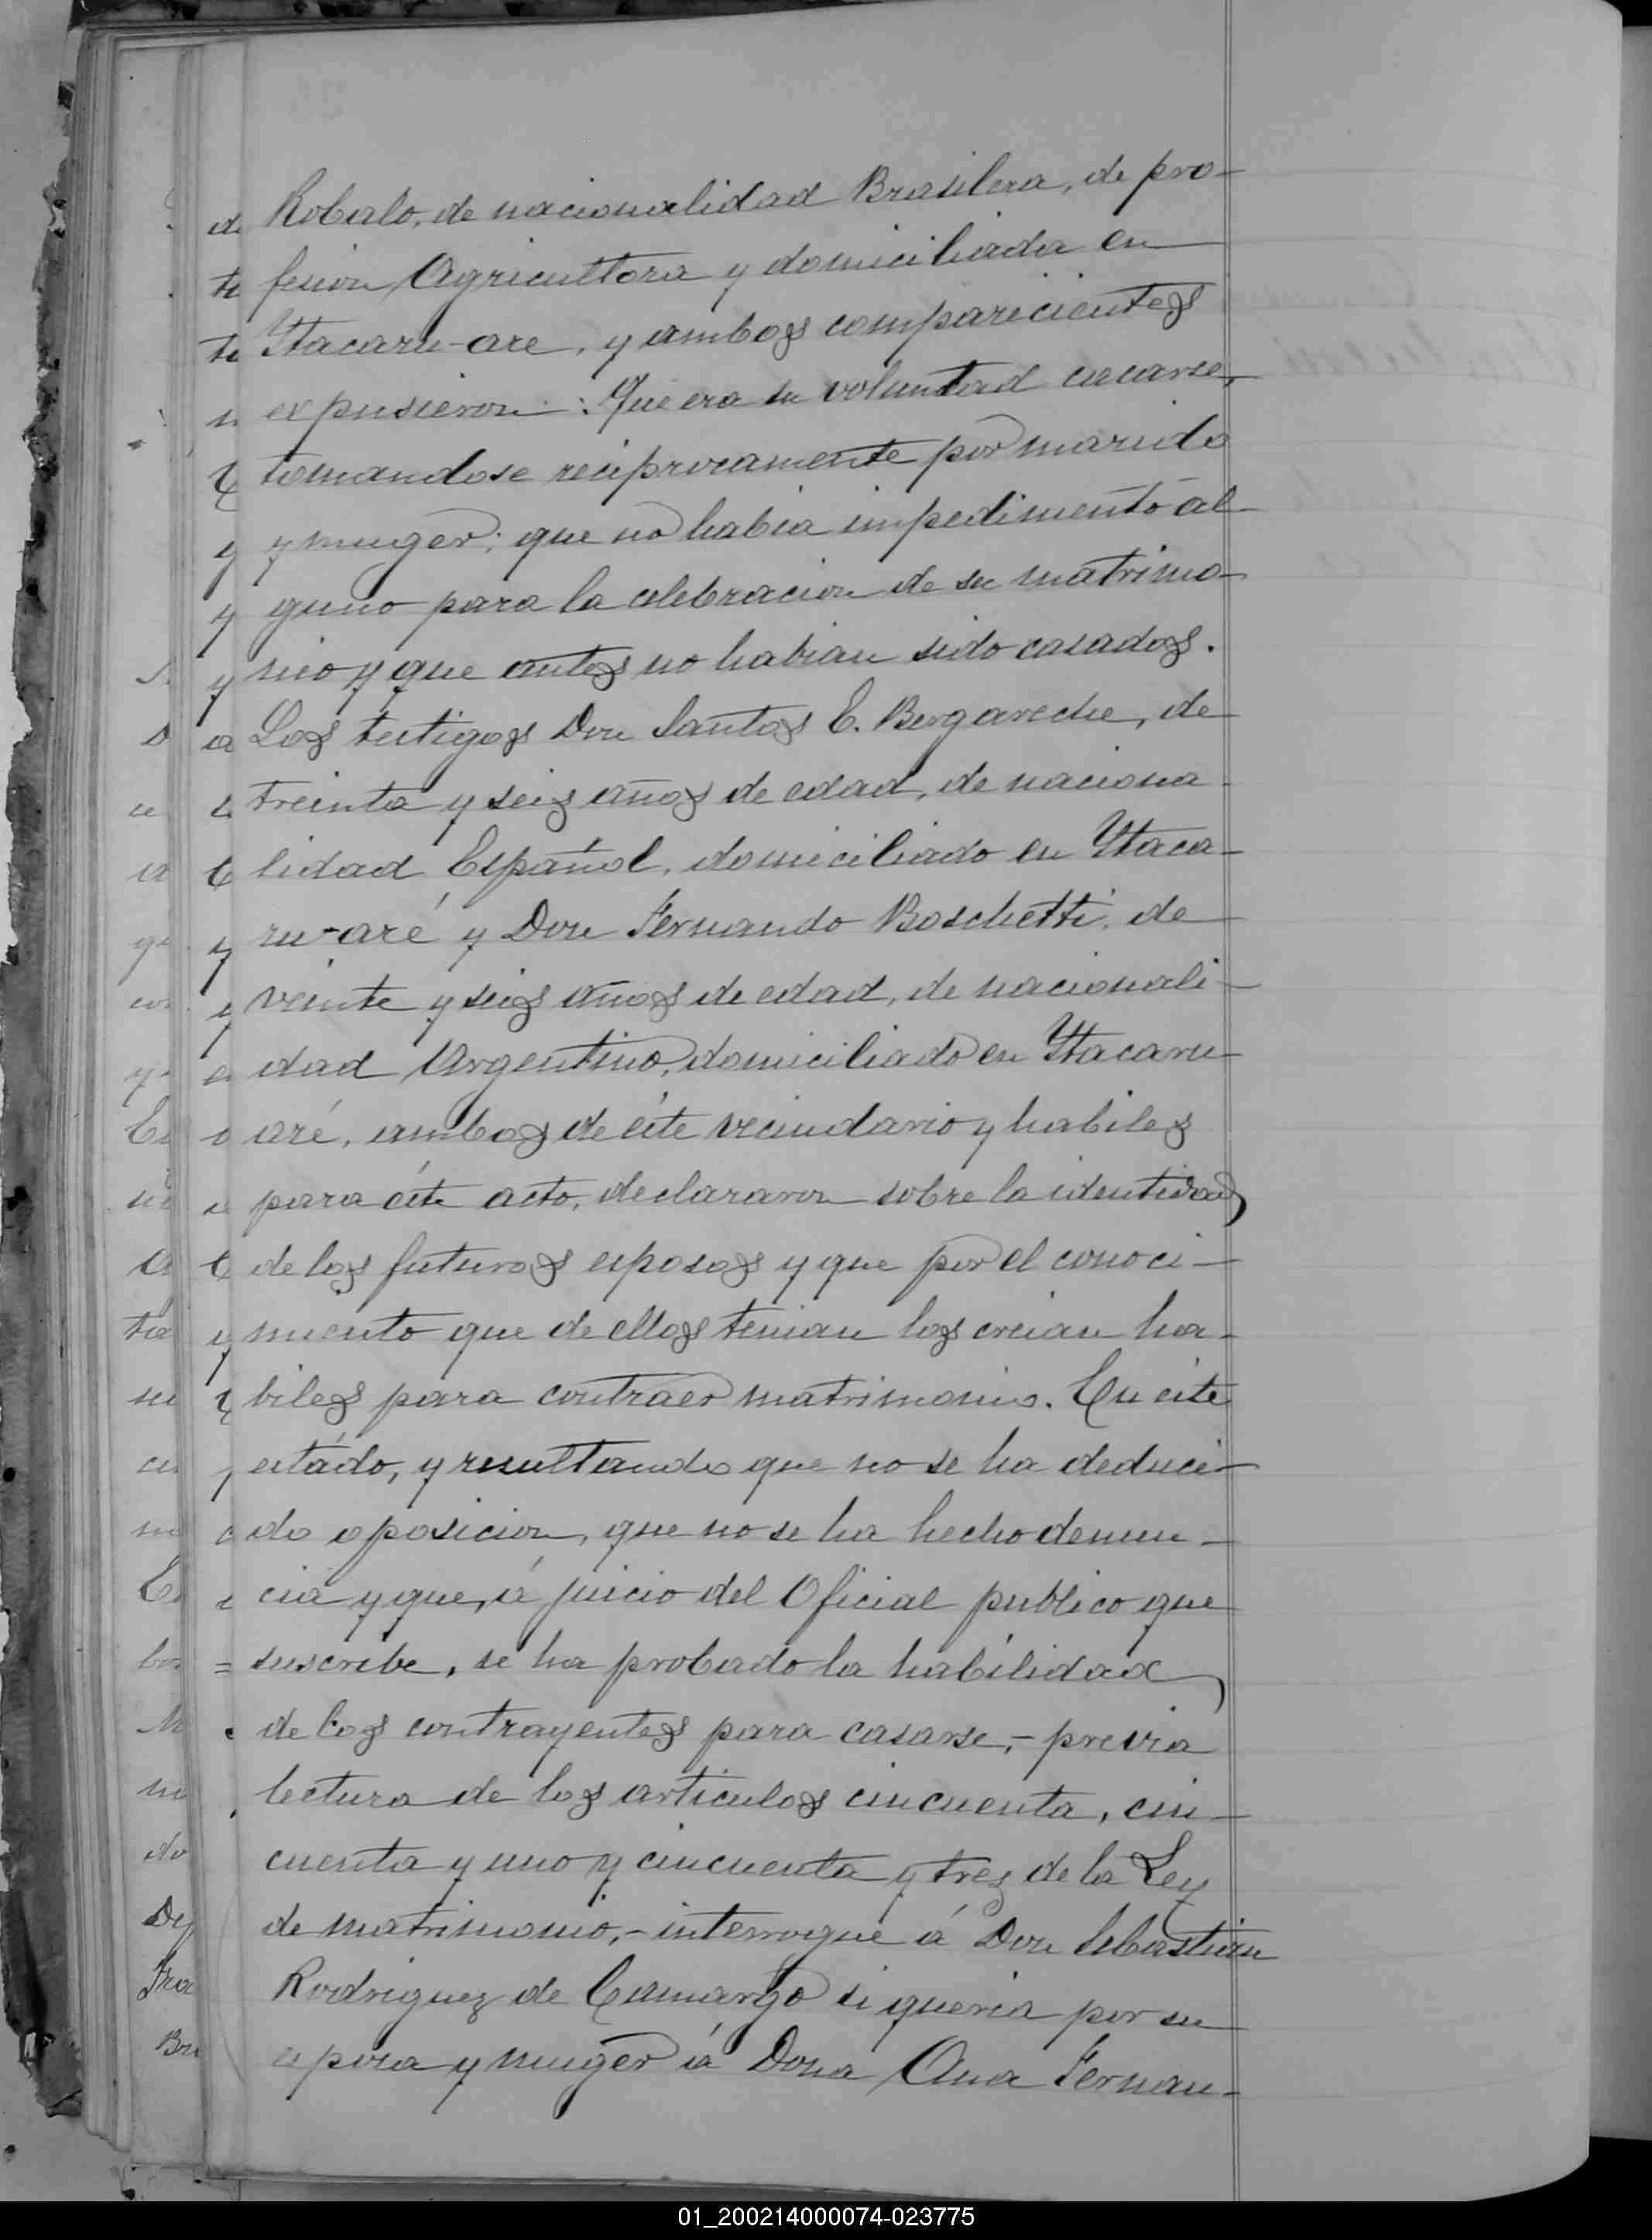 Robalo, de nacionalidad Brasilera, de pro-
fesion Agricultora y domiciliada en
Ytacaru-are, y ambos comparecientes
expusieron: Que era su voluntad casarse,
tomandose reciprocamente por marido
y muger; que no habia impedimento al-
guno para la celebracion de su matrimo-
nio y que antes no habian sido casados.
Los testigos Don Santos E. Bergareche, de
treinta y seis años de edad, de naciona-
lidad Español, domiciliado en Ytaca-
ru-aré y Don Fernando Boschetti, de
veinte y seis años de edad, de nacionali-
dad Argentino, domiciliado en Ytacaru
aré, ambos de éste vecindario y habiles
para éste acto, declararon sobre la identidad
de los futuros esposos y que por el conoci-
miento que de ellos tenian los creian ha-
biles para contraer matrimonio. En éste
estádo, y resultando que no se ha deduci-
do oposicion, que no se ha hecho denun-
cia y que, á juicio del Oficial publico que
suscribe, se ha probado la habilidad
de los contrayentes para casarse,- previa
lectura de los articulos cincuenta, cin-
cuenta y uno y cincuenta y tres de la Ley
de matrimonio,- interrogué á Don Sebastian
Rodriguez de Camargo si queria por su
esposa y muger á Dona Ana Fernan-
01_200214000074-023775